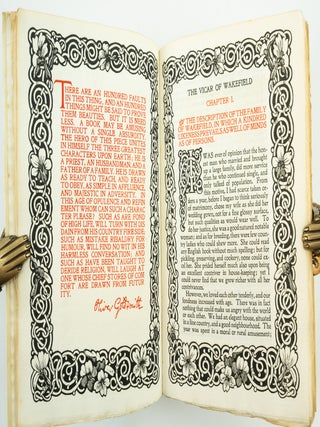 THERE ARE AN HUNDRED FAULTS
IN THIS THING, AND AN HUNDRED
THINGS MIGHT BE SAID TO PROVE
THEM BEAUTIES. BUT IT IS NEED-
LESS. A BOOK MAY BE AMUSING
WITHOUT A SINGLE ABSURDITY.
THE HERO OF THIS PIECE UNITES
IN HIMSELF THE THREE GREATEST
CHARACTERS UPON EARTH: HE IS
A PRIEST, AN HUSBANDMAN, AND A
FATHER OF A FAMILY. HE IS DRAWN
AS READY TO TEACH, AND READY
TO OBEY, AS SIMPLE IN AFFLUENCE,
AND MAJESTIC IN ADVERSITY. IN
THIS AGE OF OPULENCE AND REFINE-
MENT WHOM CAN SUCH A CHARAC-
TER PLEASE? SUCH AS ARE FOND
OF HIGH LIFE, WILL TURN WITH DIS-
DAIN FROM HIS COUNTRY FIRESIDE.
SUCH AS MISTAKE RIBALDRY FOR
HUMOUR, WILL FIND NO WIT IN HIS
HARMLESS CONVERSATION: AND
SUCH AS HAVE BEEN TAUGHT TO
DERIDE RELIGION, WILL LAUGH AT
ONE WHOSE CHIEF STORES OF COM-
FORT ARE DRAWN FROM FUTUR-
ITY.
Oliver Goldsmith
THE VICAR OF WAKEFIELD
CHAPTER I.
THE DESCRIPTION OF THE FAMILY
OF WAKEFIELD, IN WHICH A KINDRED
LIKENESS PREVAILS AS WELL OF MINDS
AS OF PERSONS.
I WAS ever of opinion that the hon-
est man who married and brought
up a large family, did more service
than he who continued single, and
only talked of population. From
this motive, I had scarce taken or-
ders a year, before I began to think seriously
of matrimony, chose my wife as she did her
wedding gown, not for a fine glossy surface,
but such qualities as would wear well. To
do her justice, she was a good natured notable
woman; and as for breeding, there were few coun-
try ladies who could shew more. She could read
any English book without much spelling; but for
pickling, preserving, and cookery, none could ex-
cel her. She prided herself much also upon being
an excellent contriver in house-keeping; yet I
could never find that we grew richer with all her
contrivances.
However, we loved each other tenderly, and our
fondness increased with age. There was in fact
nothing that could make us angry with the world
or each other. We had an elegant house, situated
in a fine country, and a good neighbourhood. The
year was spent in a moral or rural amusement;